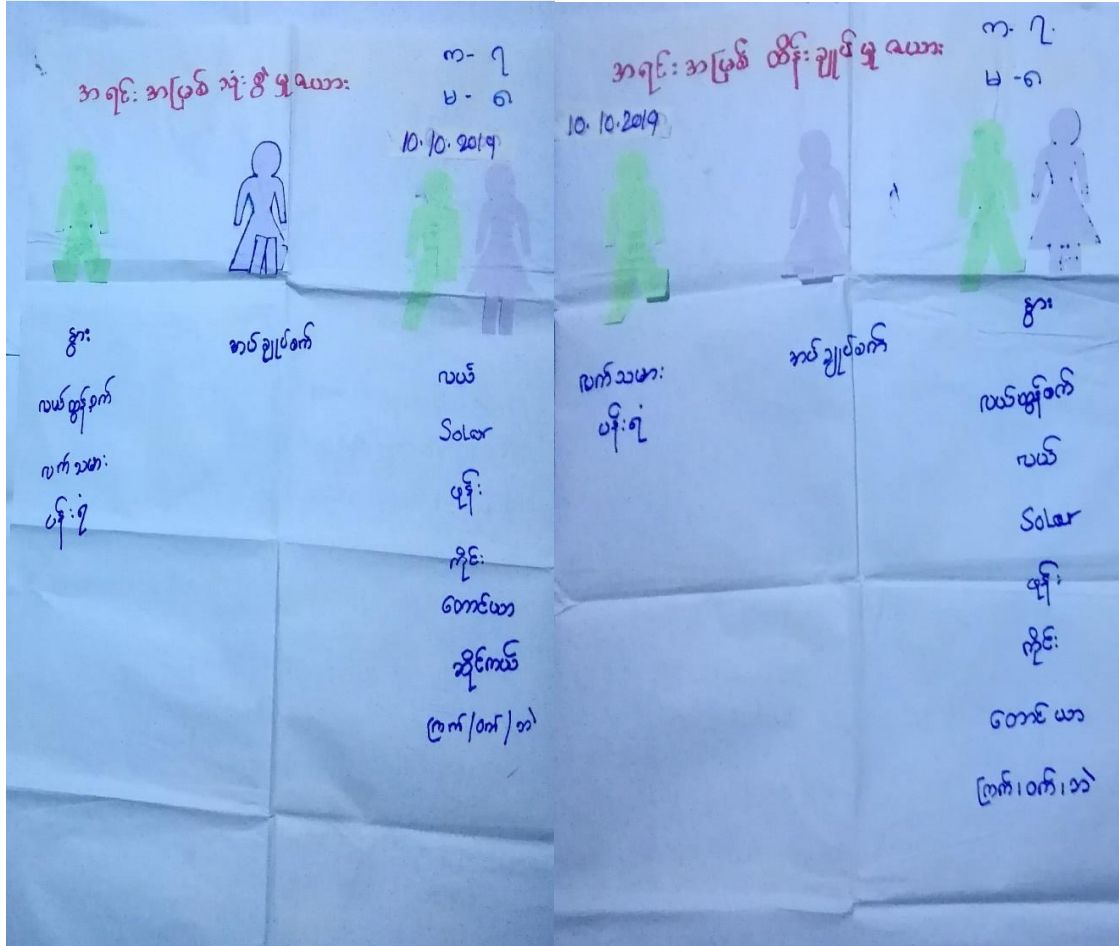 အရင်းအမြစ် သုံးစွဲမှုဇယား
က- ၇
မ - ၈
10.10.2019
နွား
လယ်ထွန်စက်
လက်သမား
ပန်းရံ
အပ်ချုပ်စက်
လယ်
Solar
ဖုန်း
ကိုင်း
တောင်ယာ
ဆိုင်ကယ်
ကြက်/ဝက်/ဘဲ
အရင်းအမြစ် ထိန်းချုပ်မှုဇယား
က- ၇.
မ -၈
10.10.2019
လက်သမား
ပန်းရံ
အပ်ချုပ်စက်
နွား
လယ်ထွန်စက်
လယ်
Solar
ဖုန်း
ကိုင်း
တောင်ယာ
ကြက်၊ဝက်၊ဘဲ